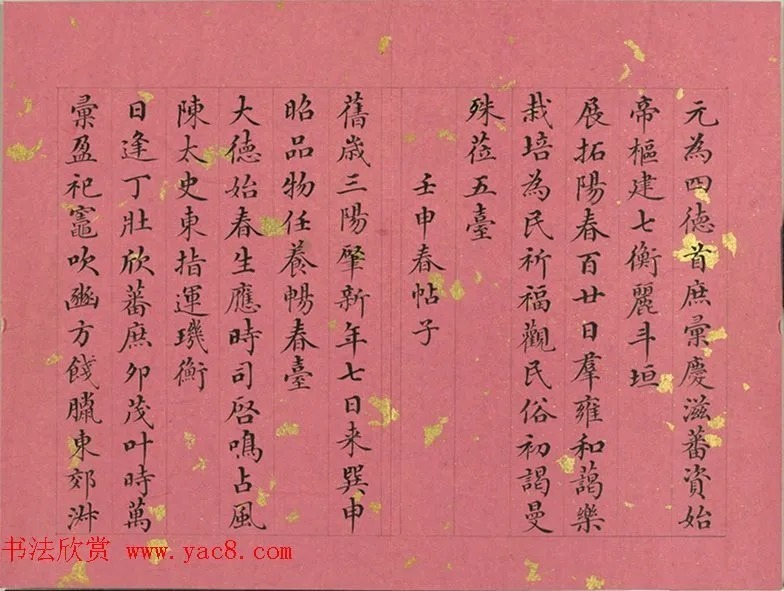 元為四德首庶彙慶滋蕃資始
帝樞建七衡麗斗垣
展拓陽春百廿日羣雍和藹樂
栽培為民祈福觀民俗初謁曼
殊蒞五臺
壬申春帖子
舊歲三陽肇新年七日来巽申
昭品物任養暢春臺
大德始春生應時司啓鳴占風
陳太史東指運璣衡
日逢丁壯欣蕃庶卯茂叶時萬
彙盈祀竈吹豳方餞臘東郊
书法欣赏 www.yac8.com